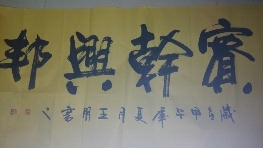 實幹興邦
歲在甲午年夏月王書